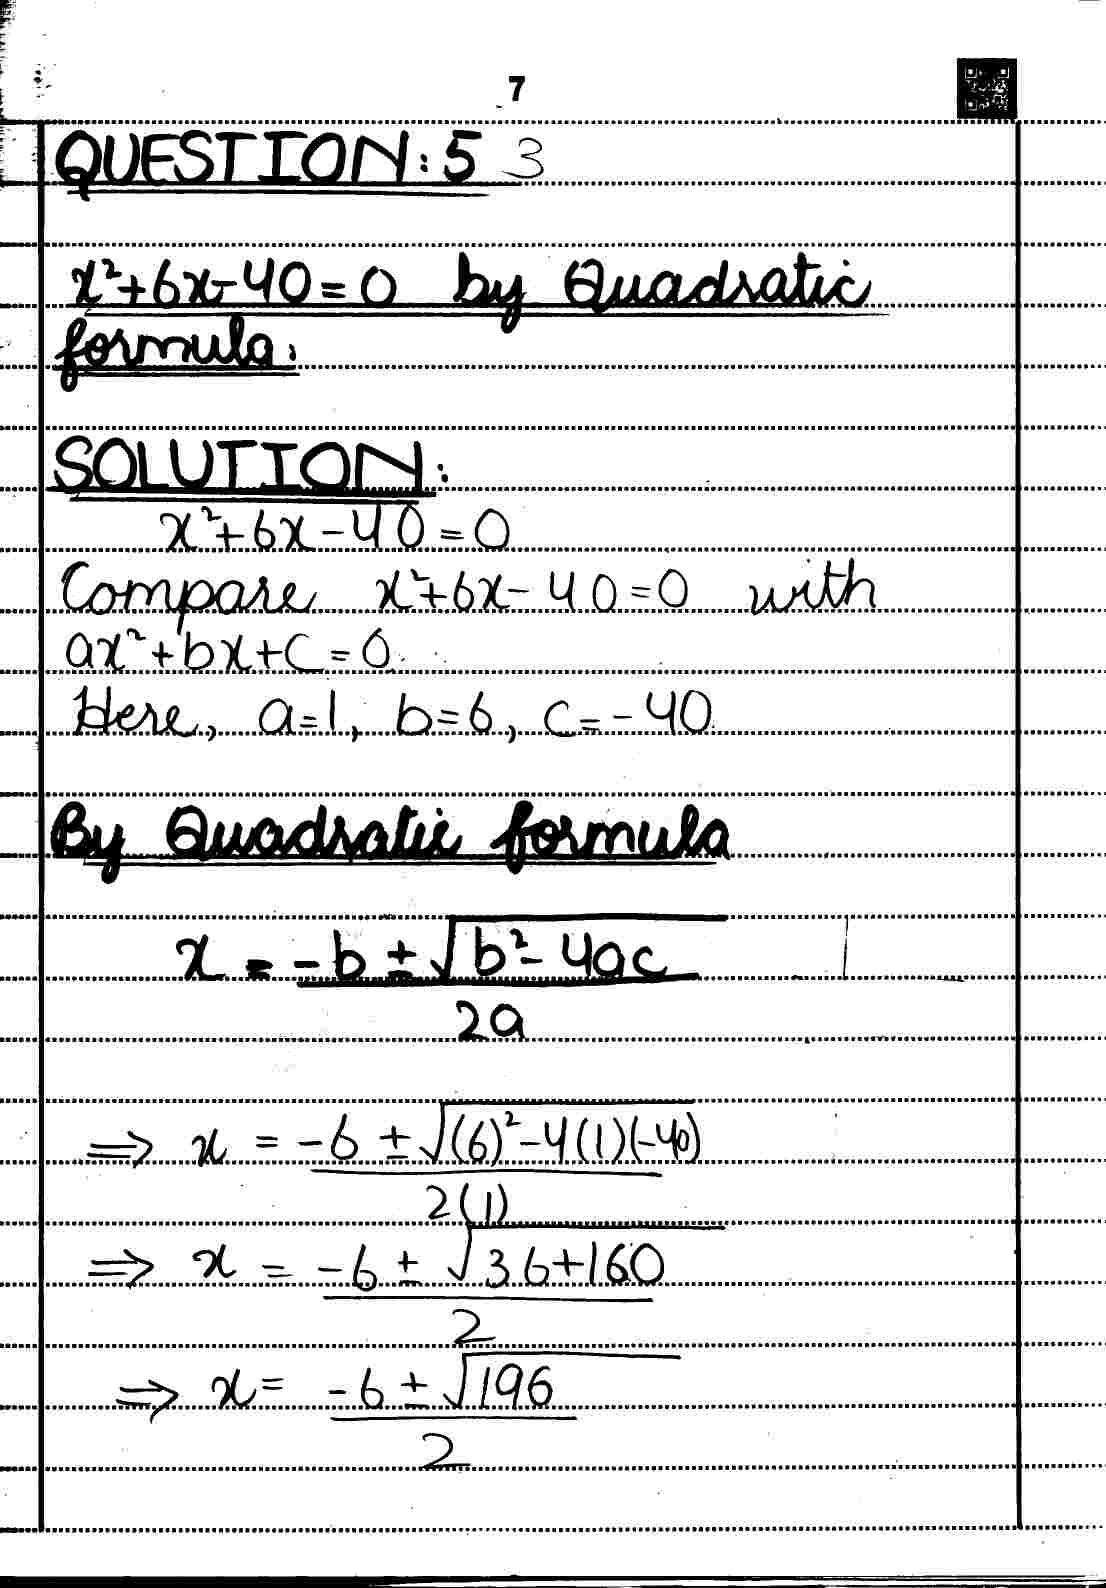 7
QUESTION: 5 3
x²+6x-40=0 by Quadratic
formula.
SOLUTION:
x²+6x-40=0
Compare x²+6x-40=0 with
ax²+bx+c=0.
Here, a=1, b=6, c=-40.
By Quadratic formula
x = -b ± √b²-4ac
2a
⇒ x = -6 ± √(6)²-4(1)(-40)
2(1)
⇒ x = -6 ± √36+160
2
⇒ x = -6 ± √196
2